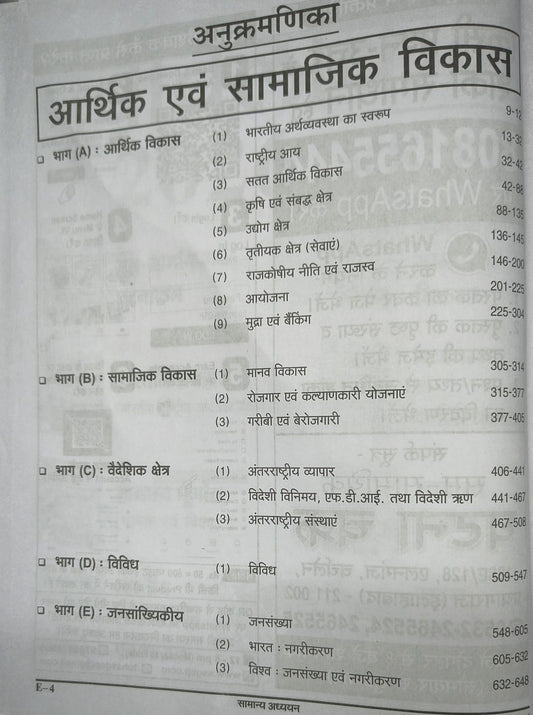 अनुक्रमणिका
आर्थिक एवं सामाजिक विकास
भाग (A) : आर्थिक विकास (1) भारतीय अर्थव्यवस्था का स्वरूप 9-12
(2) राष्ट्रीय आय 13-32
(3) सतत आर्थिक विकास 32-42
(4) कृषि एवं संबद्ध क्षेत्र 42-88
(5) उद्योग क्षेत्र 88-135
(6) तृतीयक क्षेत्र (सेवाएं) 136-145
(7) राजकोषीय नीति एवं राजस्व 146-200
(8) आयोजना 201-225
(9) मुद्रा एवं बैंकिंग 225-304
भाग (B) : सामाजिक विकास (1) मानव विकास 305-314
(2) रोजगार एवं कल्याणकारी योजनाएं 315-377
(3) गरीबी एवं बेरोजगारी 377-405
भाग (C) : वैदेशिक क्षेत्र (1) अंतरराष्ट्रीय व्यापार 406-441
(2) विदेशी विनिमय, एफ.डी.आई. तथा विदेशी ऋण 441-467
(3) अंतरराष्ट्रीय संस्थाएं 467-508
भाग (D) : विविध (1) विविध 509-547
भाग (E) : जनसांख्यिकीय (1) जनसंख्या 548-605
(2) भारत : नगरीकरण 605-632
(3) विश्व : जनसंख्या एवं नगरीकरण 632-648
E-4
सामान्य अध्ययन